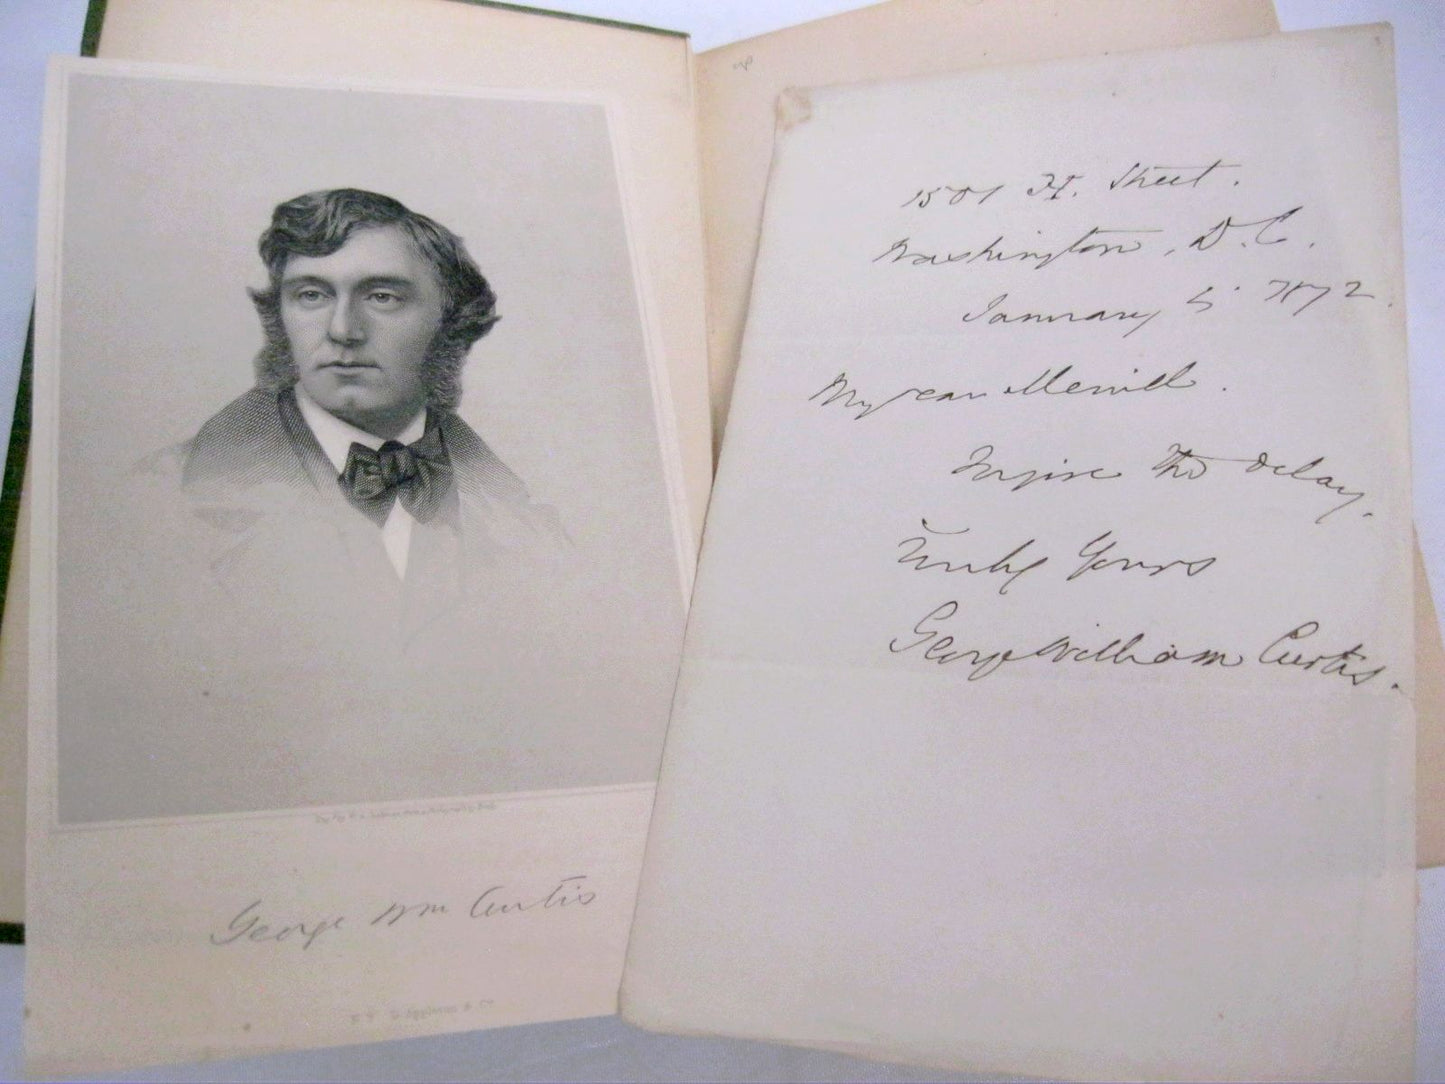 George Wm Curtis
D. Appleton & Co
1501 H. Street.
Washington, D.C.
January 5' 1872.
My dear Merrill.
the delay.
Truly Yours
George William Curtis.